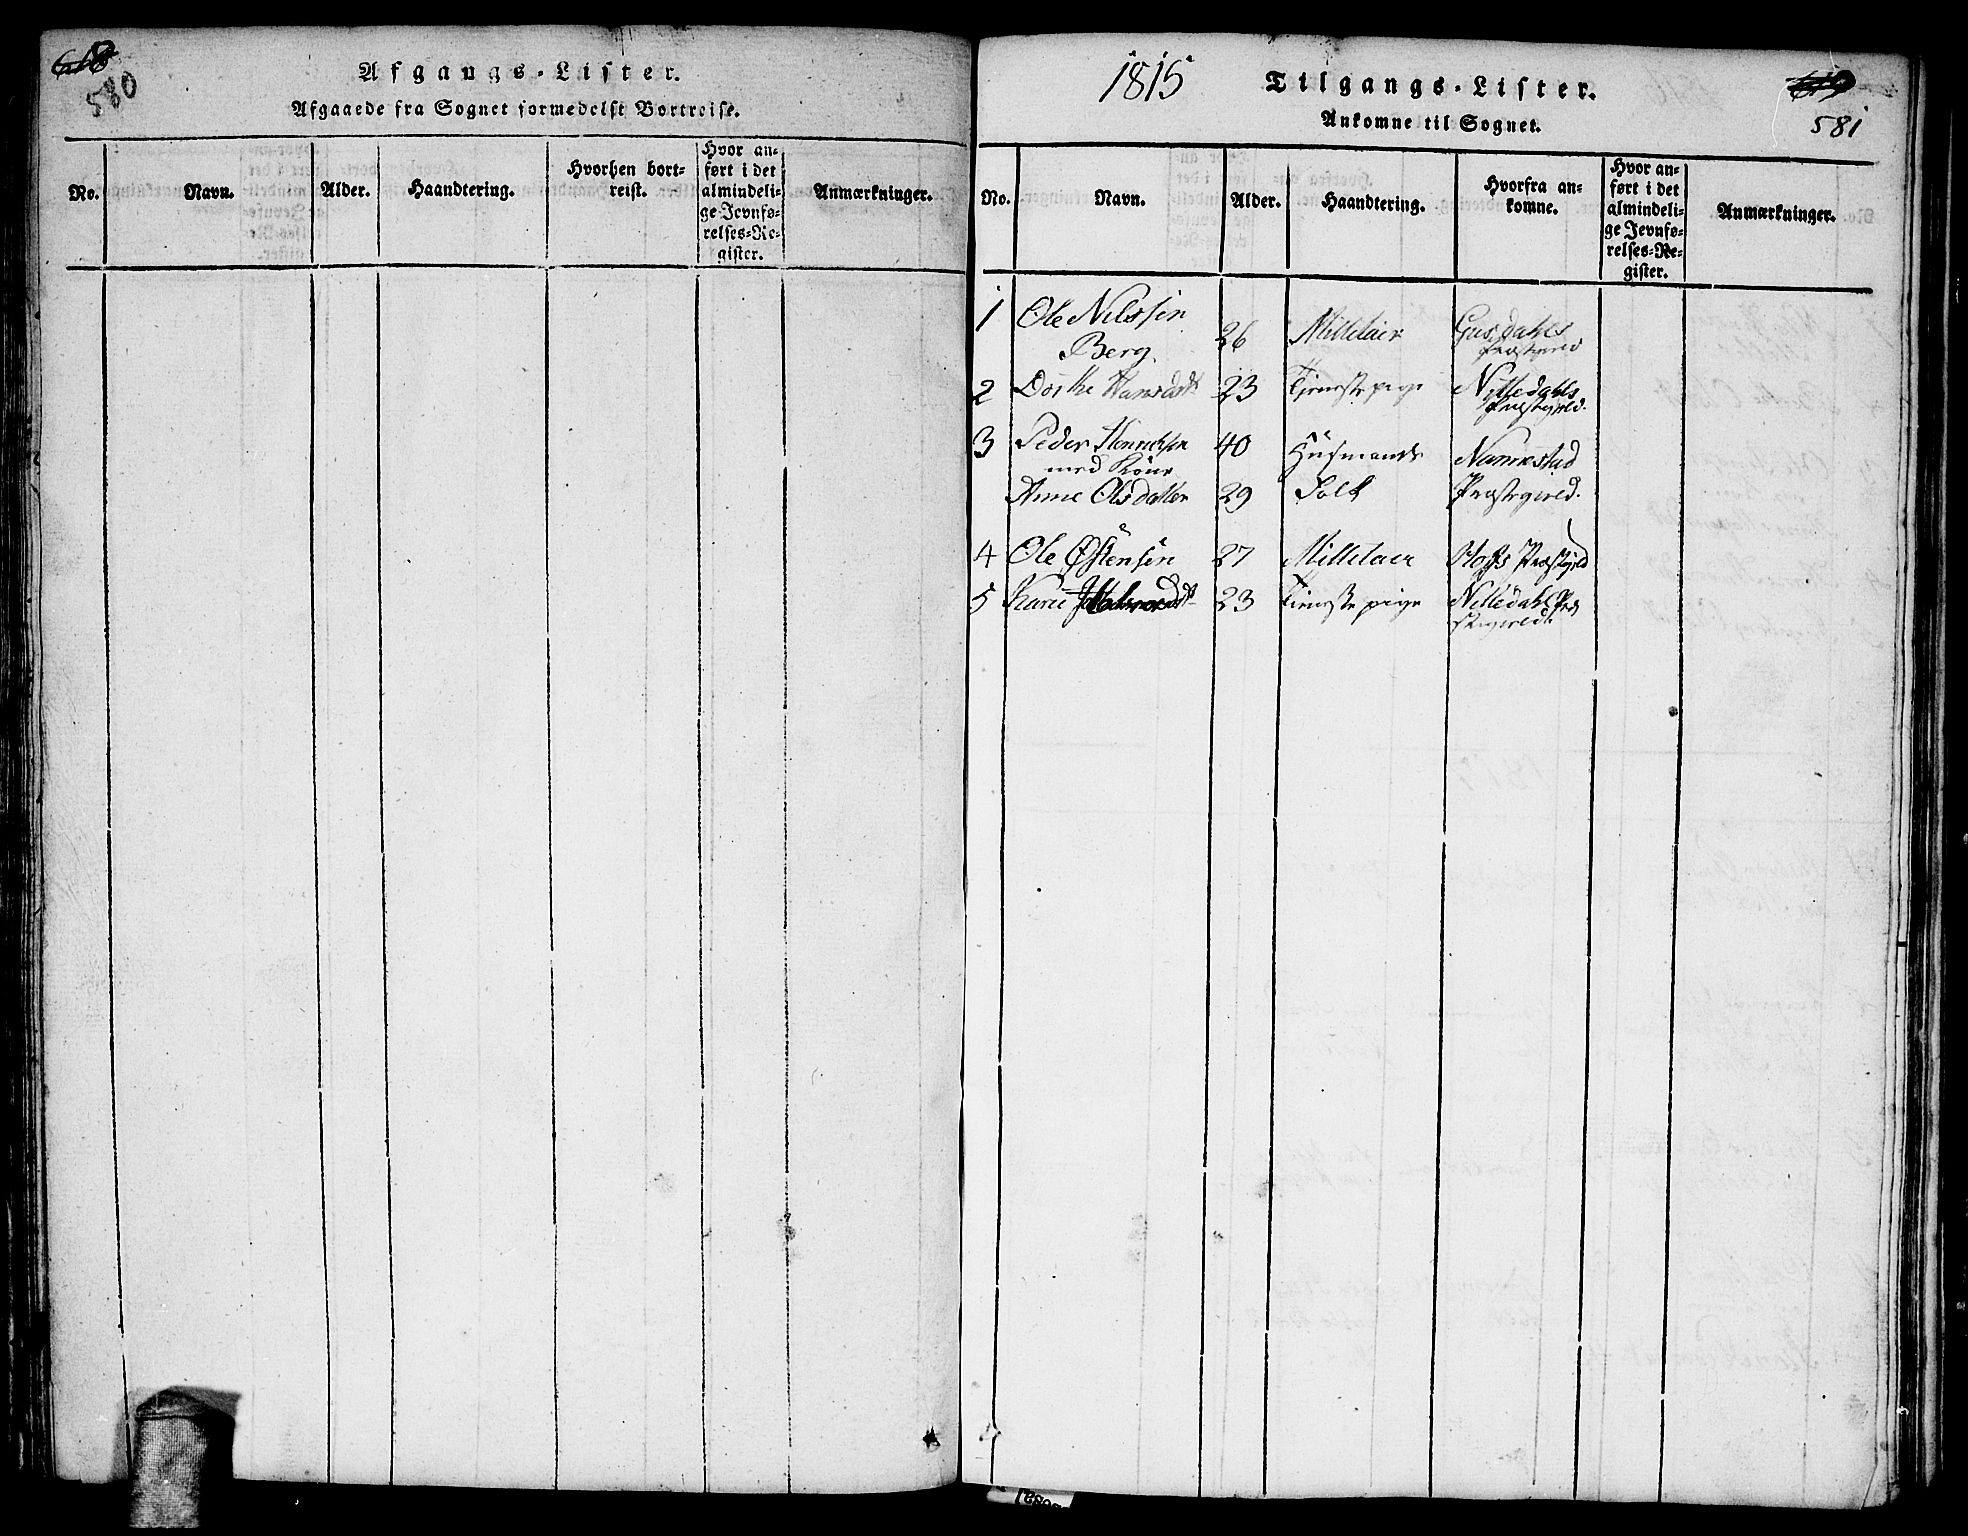 618
580
Afgangs-Lister.
Afgaaede fra Sognet formedelst Bortreise.
No.
Navn.
Alder.
Haandtering.
Hvorhen bort-
reist.
Hvor an-
ført i det
almindeli-
ge Jevnfø-
relses-Re-
gister.
Anmærkninger.
1815
Tilgangs-Lister.
Ankomne til Sognet.
619
581
No.
Navn.
Alder.
Haandtering.
Hvorfra an-
komne.
Hvor an-
ført i det
almindeli-
ge Jevnfø-
relses-Re-
gister.
Anmærkninger.
1 Ole Nilssen
Berg. 26 Millitair Gusdahls
Præstegield
2 Dorthe Hansdtr 23 Tjenestepige Nittedahls
Præstegield.
3 Peder Henrichsen 40 Huusmands Nannestad
med Kone
Anne Olsdatter 29 Folk Præstegield.
4 Ole Østensen 27 Millitair Præstgield
5 Karie 23 Tienestepige Nittedahls Præ
stegield.